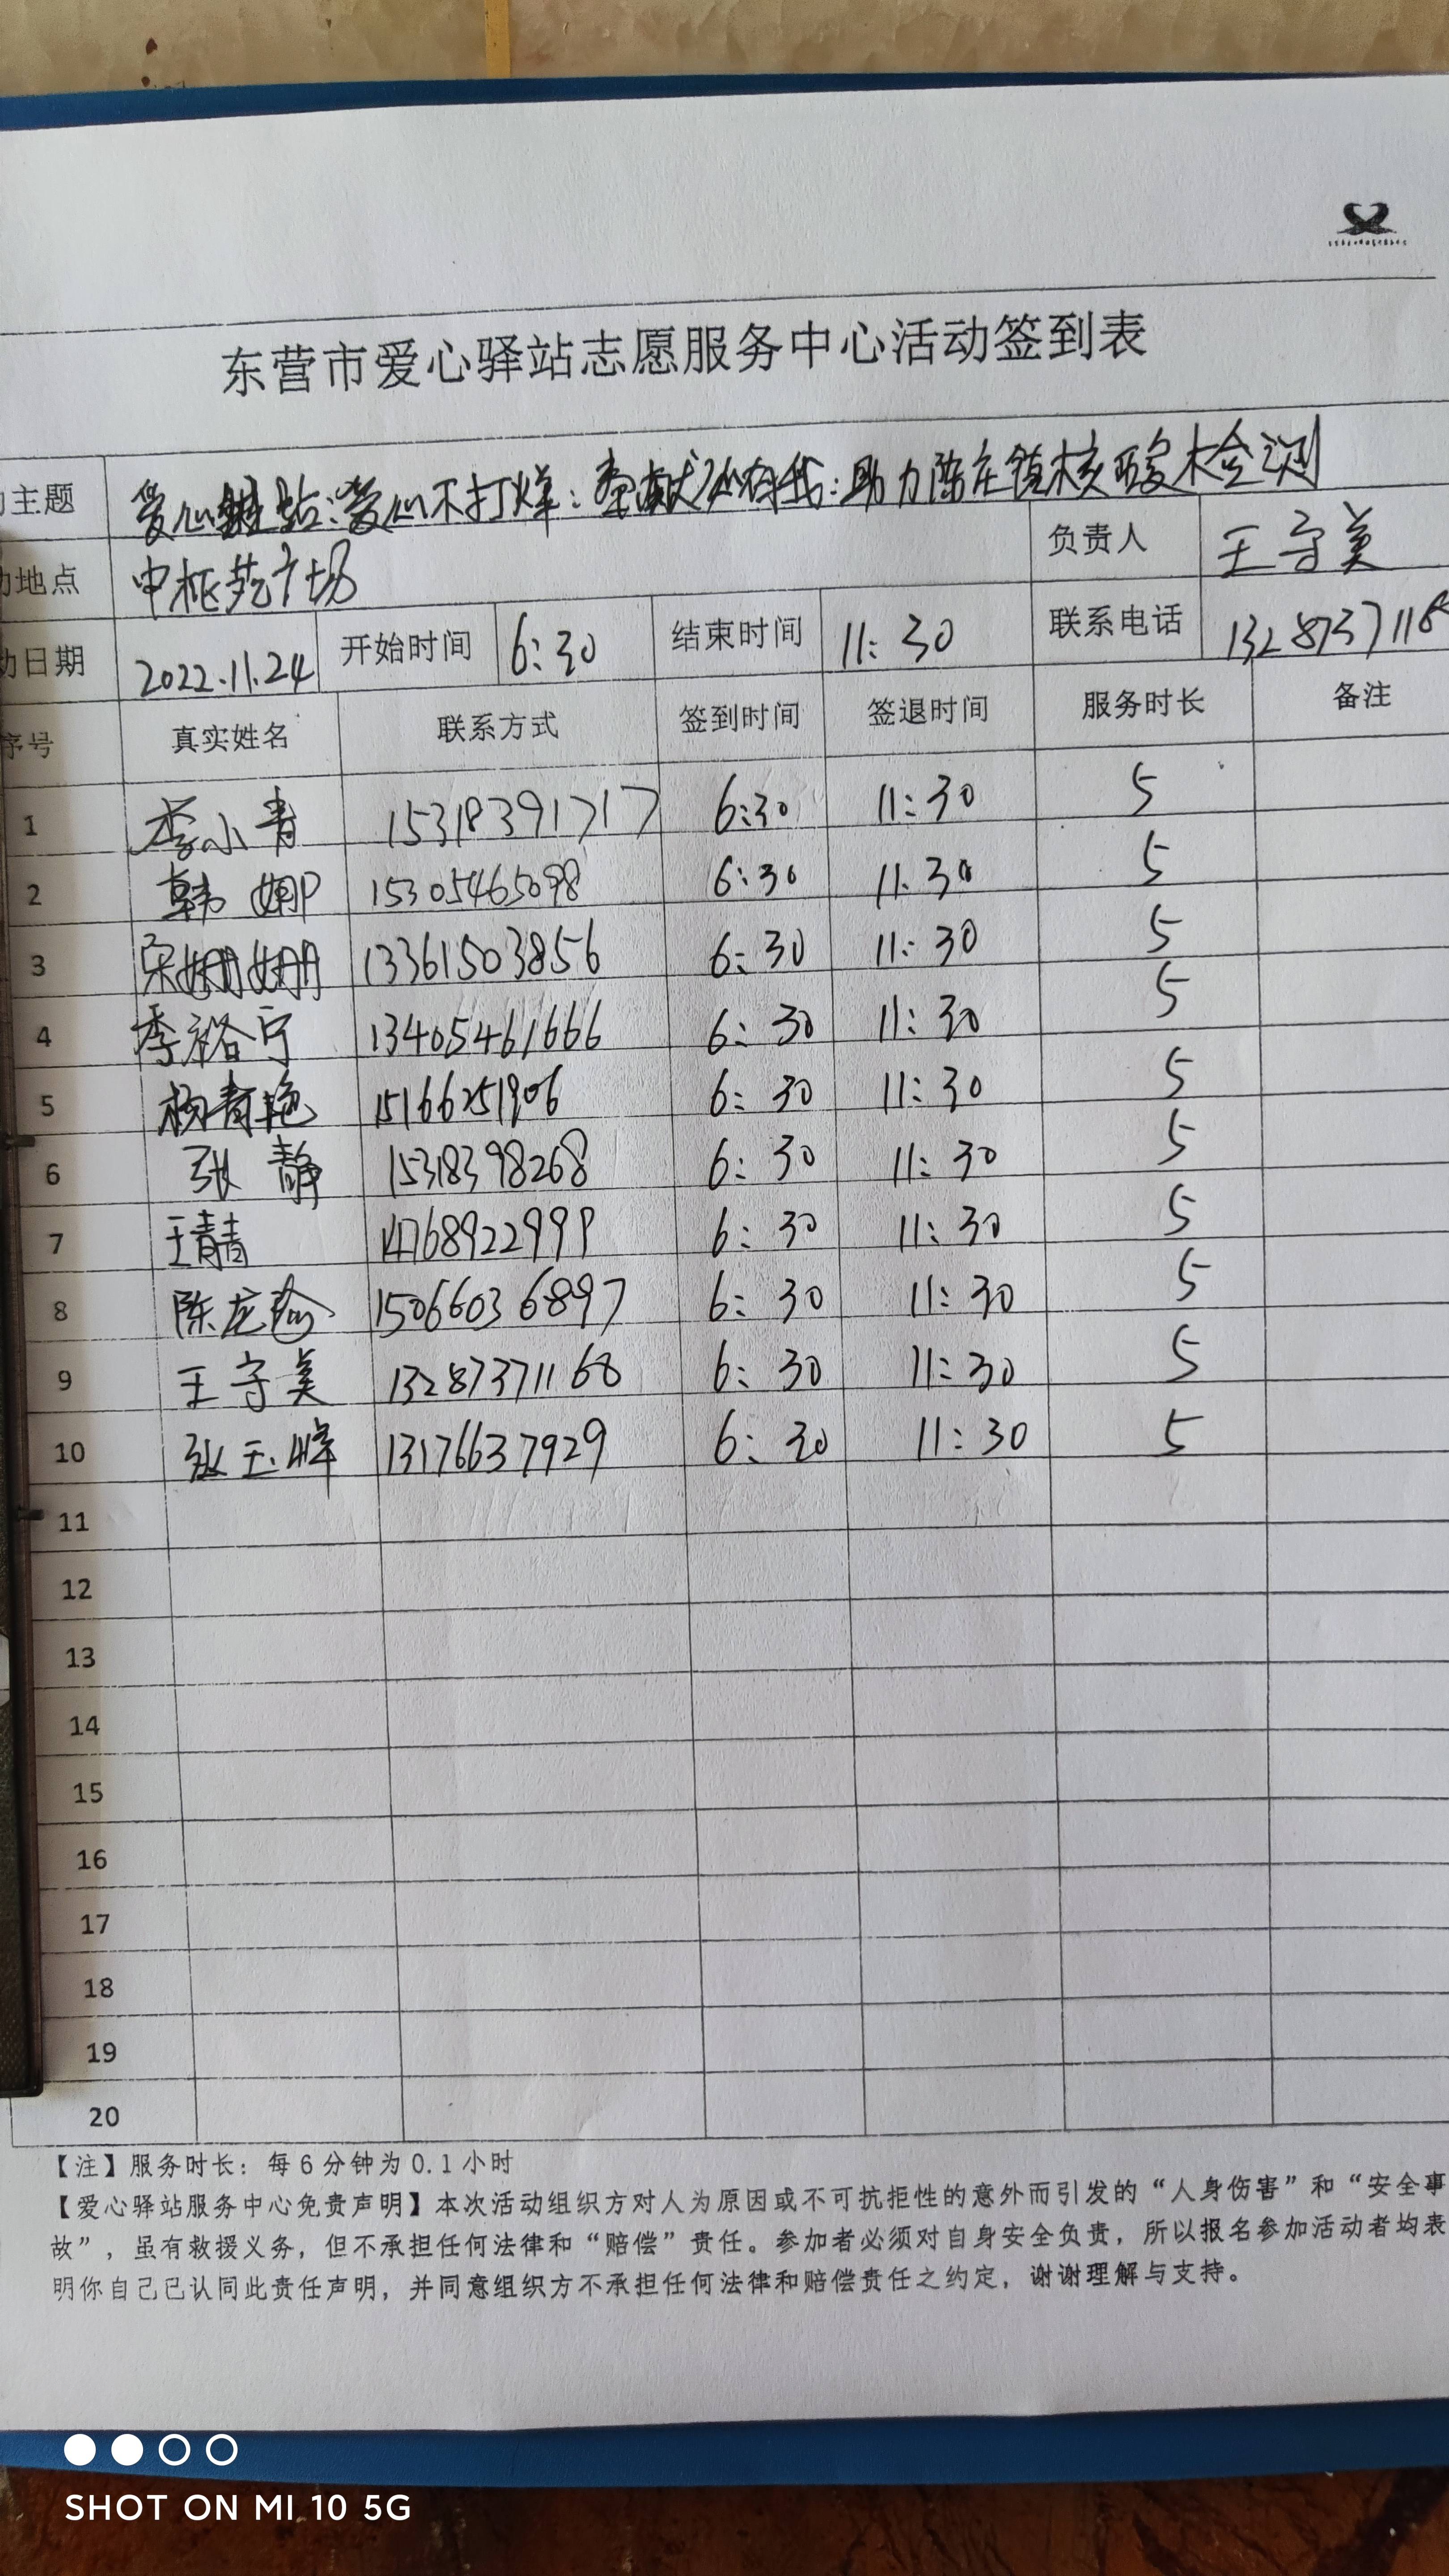 东营市爱心驿站志愿服务中心活动签到表
主题 爱心驿站:爱心不打烊:奉献必有我:助力陈庄镇核酸检测
地点 中枢苑广场 负责人 王守美
日期 2022.11.24 开始时间 6:30 结束时间 11:30 联系电话 1328737116
序号 真实姓名 联系方式 签到时间 签退时间 服务时长 备注
1 李小青 15318391717 6:30 11:30 5
2 韩娜 15305465098 6:30 11:30 5
3 宋姗姗 13361503856 6:30 11:30 5
4 李裕宁 13405461666 6:30 11:30 5
5 杨青艳 15166251906 6:30 11:30 5
6 张静 15318398268 6:30 11:30 5
7 王青青 14768922999 6:30 11:30 5
8 陈龙 15066036897 6:30 11:30 5
9 王守美 13287371168 6:30 11:30 5
10 张玉峰 13176637929 6:30 11:30 5
11
12
13
14
15
16
17
18
19
20
【注】服务时长：每6分钟为0.1小时
【爱心驿站服务中心免责声明】本次活动组织方对人为原因或不可抗拒性的意外而引发的“人身伤害”和“安全事
故”，虽有救援义务，但不承担任何法律和“赔偿”责任。参加者必须对自身安全负责，所以报名参加活动者均表
明你自己已认同此责任声明，并同意组织方不承担任何法律和赔偿责任之约定，谢谢理解与支持。
SHOT ON MI 10 5G